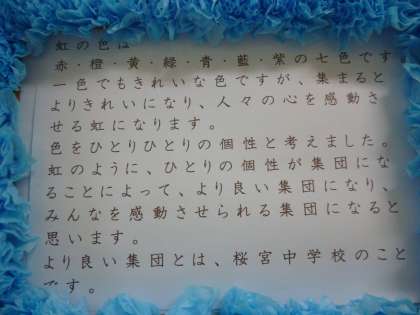 虹の色は
赤・橙・黄・緑・青・藍・紫の七色です
一色でもきれいな色ですが、集まると
よりきれいになり、人々の心を感動さ
せる虹になります。
色をひとりひとりの個性と考えました。
虹のように、ひとりの個性が集団にな
ることによって、より良い集団になり、
みんなを感動させられる集団になると
思います。
より良い集団とは、桜宮中学校のこと
です。